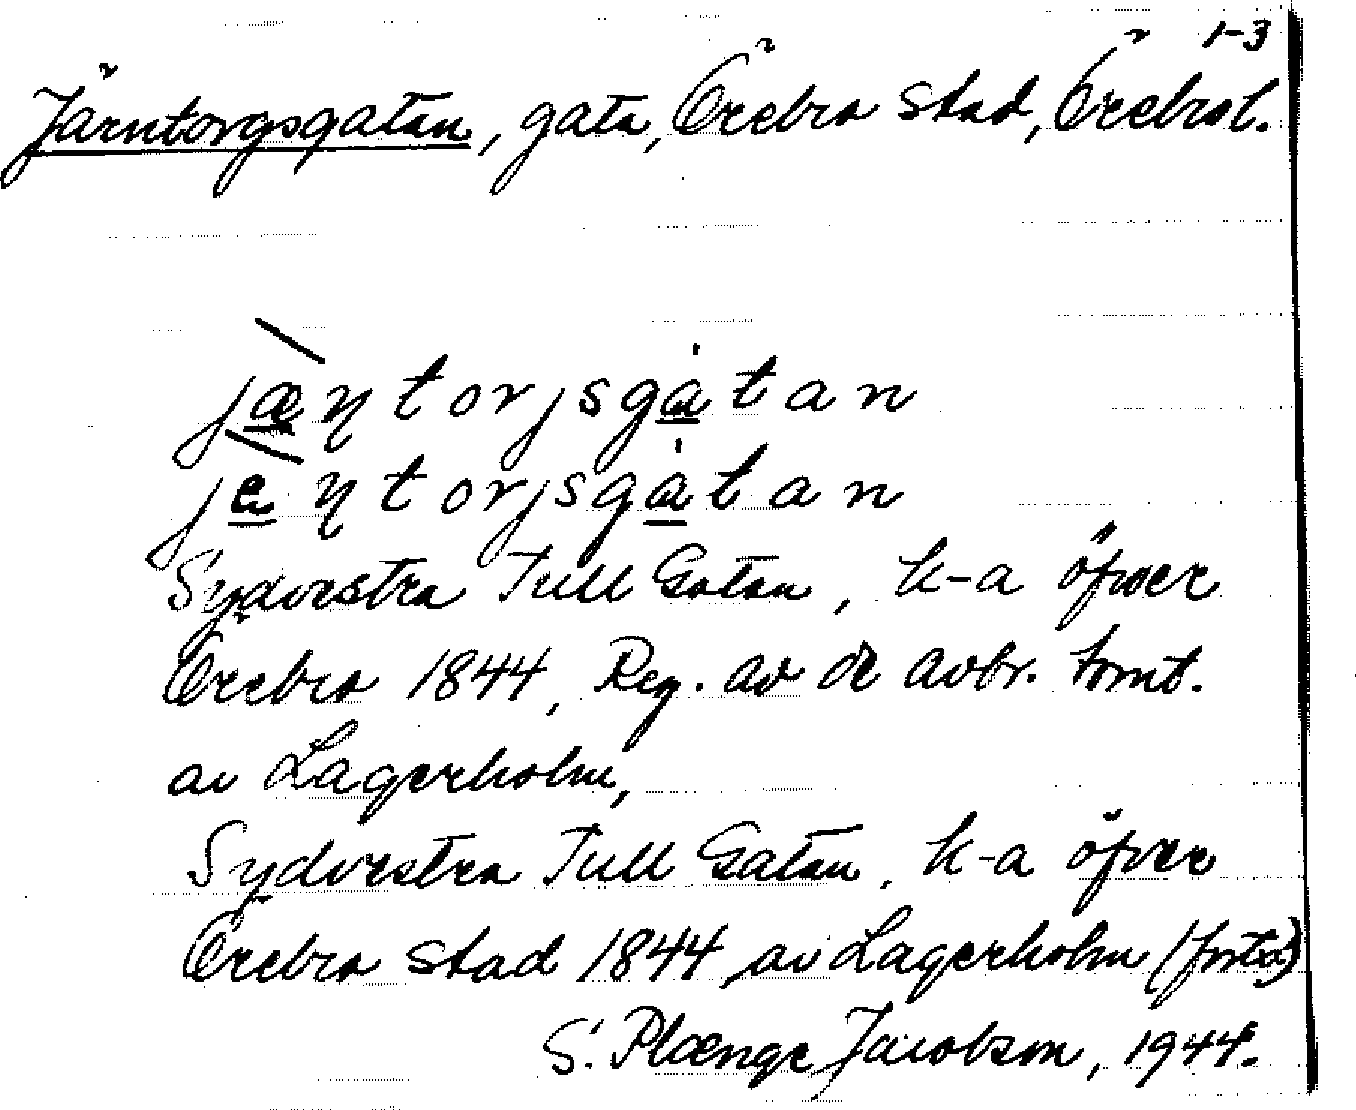 1-3
Järntorgsgatan, gata, Örebro stad, Örebro l.
jæ̀ɳtorjsgàtan
jèɳtorjsgàtan
Sydvestra Tull Gatan, k-a öfver
Örebro 1844, Reg. av de avbr. tomt.
av Lagerholm,
Sydvestra Tull Gatan, k-a öfver
Örebro stad 1844, av Lagerholm (foto)
S. Plænge Jacobson, 1944.